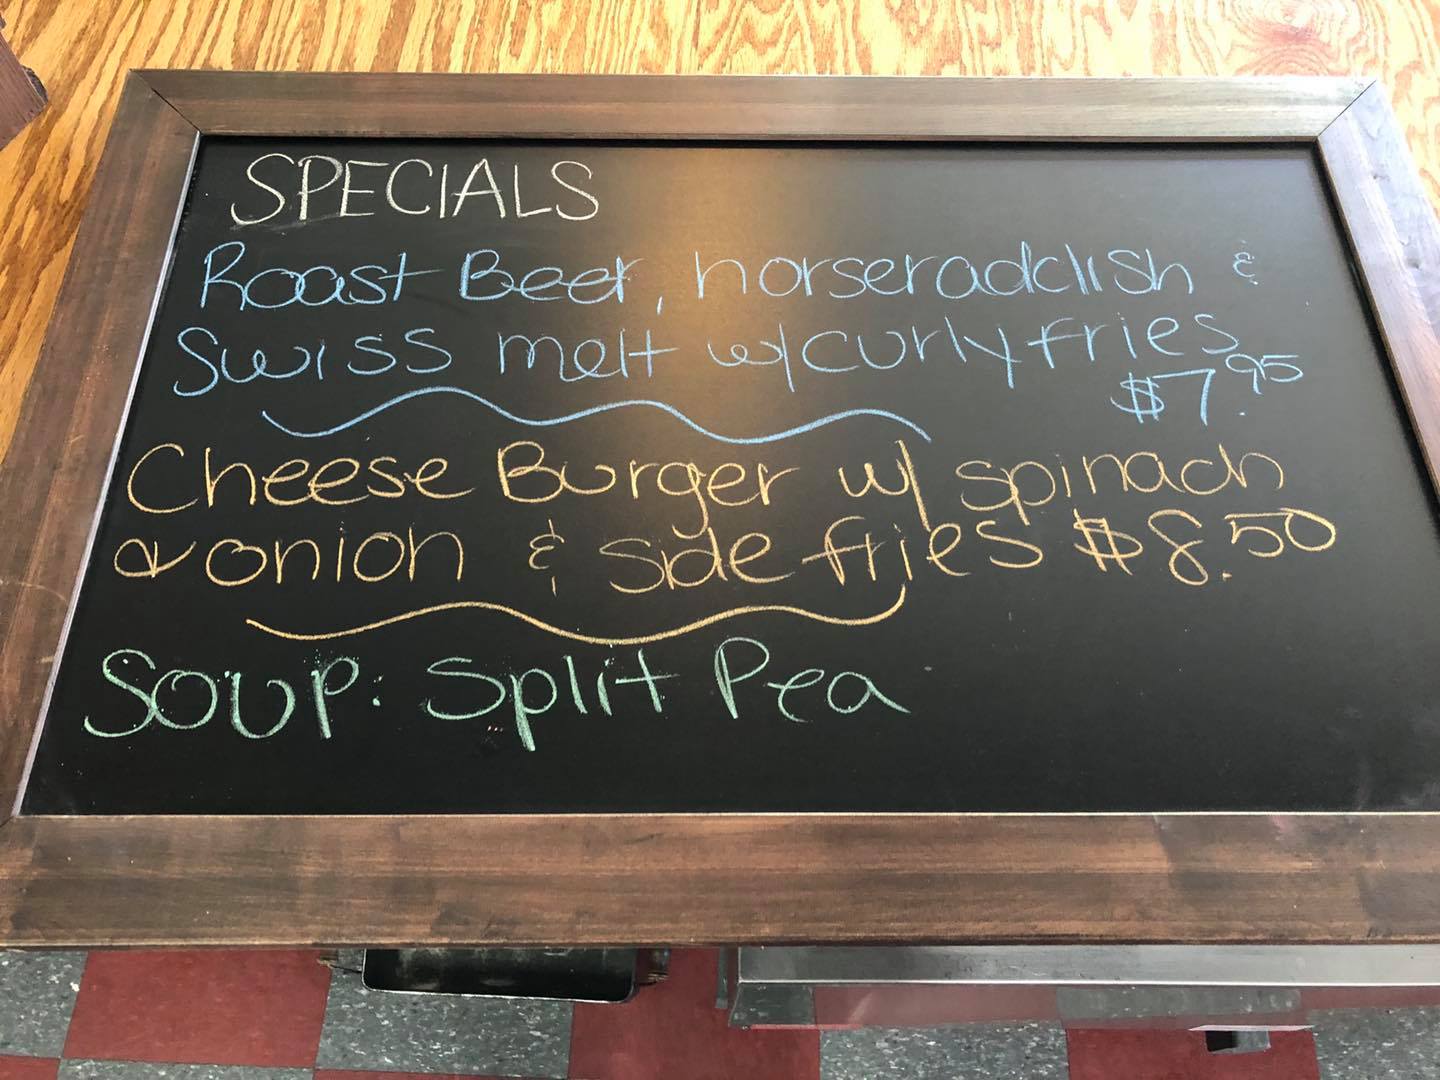 SPECIALS
Roast Beef, horseradish &
Swiss melt w/curly fries
$7.95
Cheese Burger w/ spinach
& onion & side fries $8.50
Soup: Split Pea